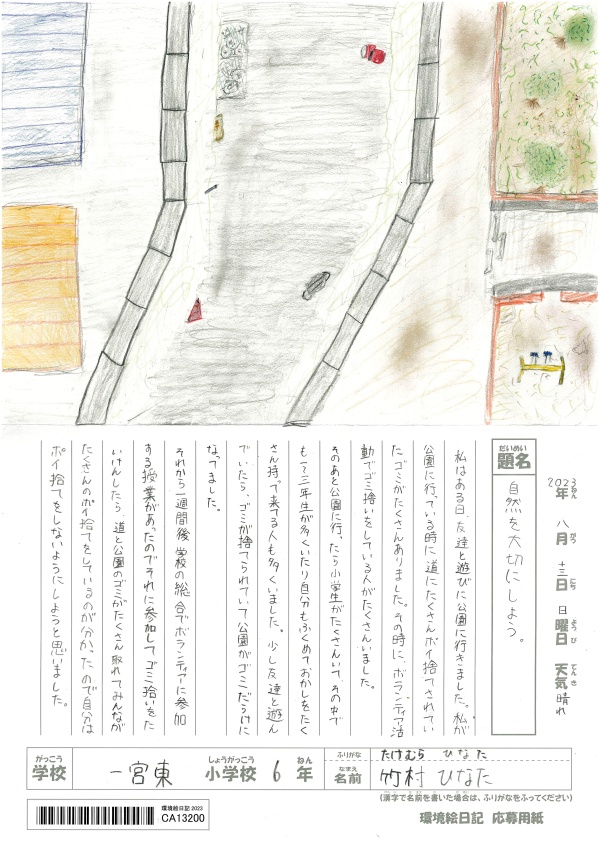 2023年 八月 十三日 日曜日 天気 晴れ
ねん がつ にち ようび てんき
だいめい
題名
自然を大切にしよう。
私はある日、友達と遊びに公園に行きました。私が
公園に行っている時に道にたくさんポイ捨てされてい
た、ゴミがたくさんありました。その時に、ボランティア活
動でゴミ捨いをしている人がたくさんいました。
そのあと公園に行ったら小学生がたくさんいて、その中で
も一、三年生が多くいたり自分もふくめておかしをたく
さん持って来てる人も多くいました。少し友達と遊ん
でいたら、ゴミが捨てられていて公園がゴミだらけに
なってました。
それから一週間後学校の総合でボランティアに参加
ある授業があったのでそれに参加してゴミ拾いをた
いけんしたら、道と公園のゴミがたくさん取れてみんなが
たくさんのポイ捨てをしているのが分かったので自分は
ポイ捨てをしないようにしようと思いました。
がっこう しょうがっこう ねん ふりがな たけむら ひなた
学校 一宮東 小学校 6年 なまえ 名前 竹村 ひなた
(漢字で名前を書いた場合は、ふりがなをふってください)
環境絵日記 2023
CA13200
環境絵日記 応募用紙